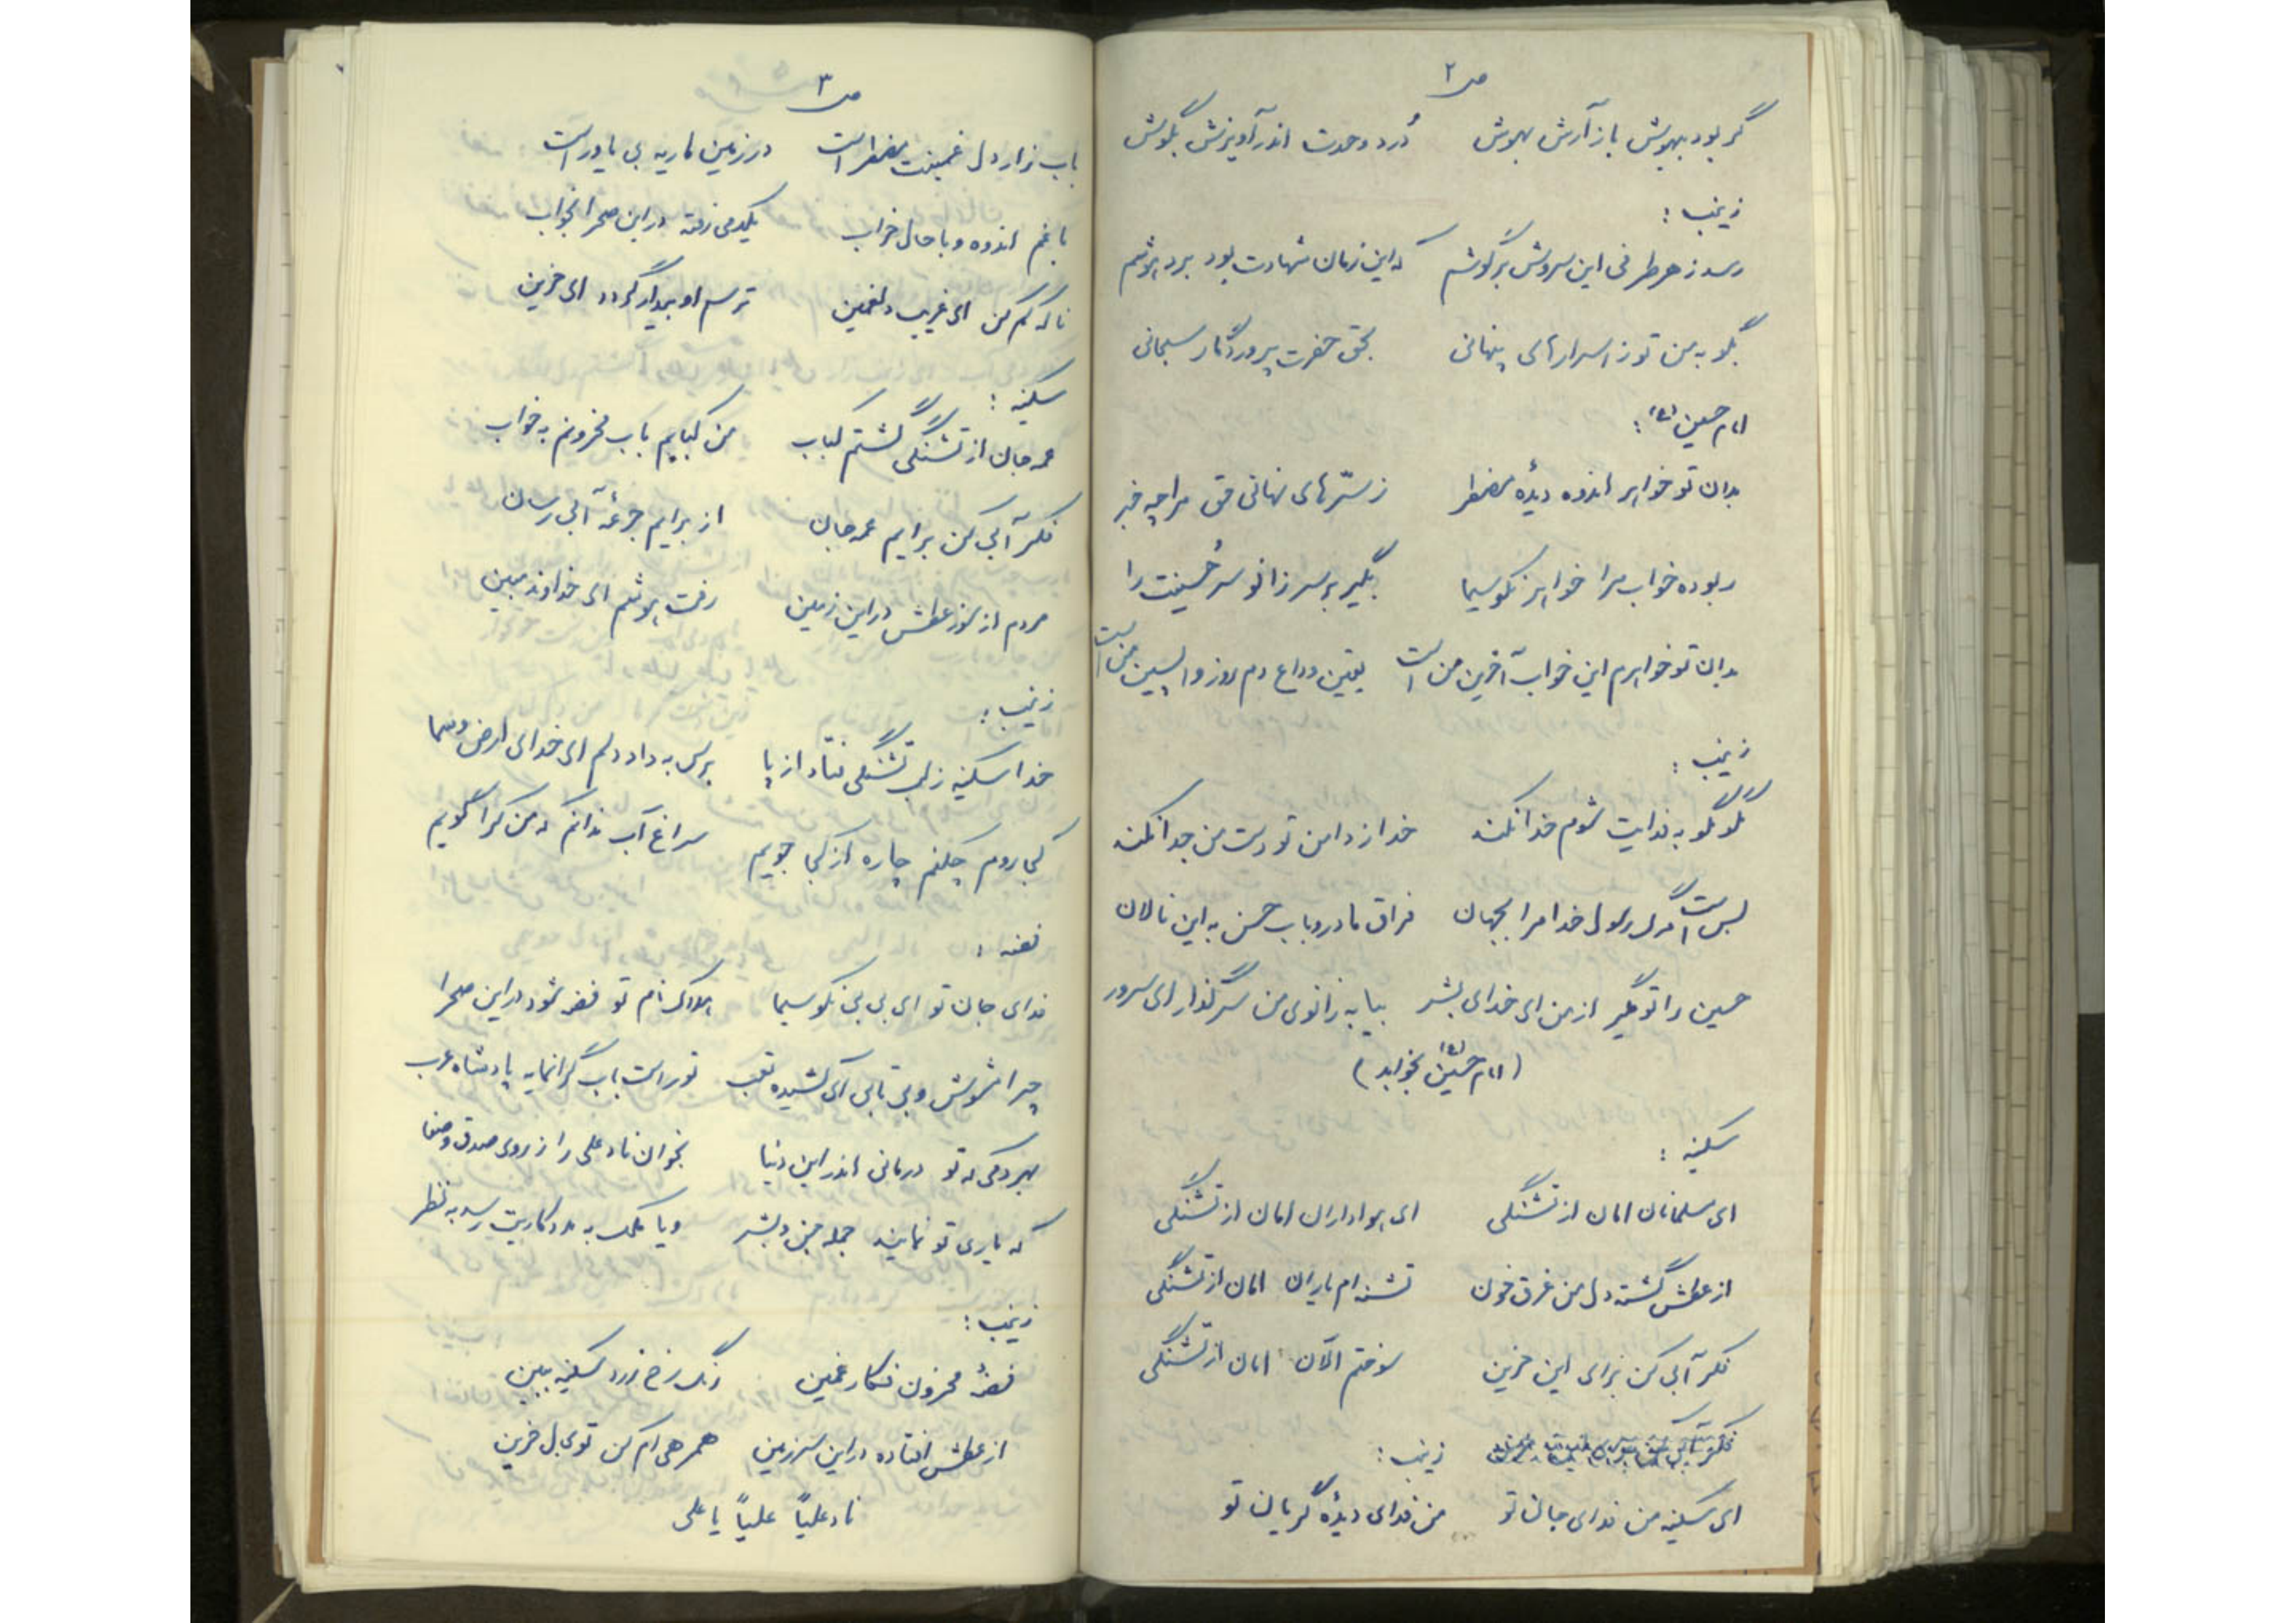 ص ۲
گر بود بیهوش باز آرش بهوش دُرد وحدت اندر آویزش بگوش
زینب :
رسد ز هر طرفی این سروش بر گوشم که این زمان شهادت بود برد هوشم
بگو به من تو ز اسرارهای پنهانی بحق حضرت پروردگار سبحانی
امام حسین (ع) :
بدان تو خواهر اندوه دیدهٔ مضطر ز سرّهای نهانی حق مرا چه خبر
ربوده خواب مرا خواهر نکو سیما بگیر بر سر زانو سر حُسینت را
بدان تو خواهرم این خواب آخرین من است یقین وداع دم روز واپسین من است
زینب :
بگو بگو به فدایت شوم خدا نکند خدا ز دامن تو دست من جدا نکند
بس است مرگ رسول خدا مرا بجهان فراق مادر و باب حسن به این نالان
حسین را تو مگیر از من ای خدای بشر بیا به زانوی من سر گذار ای سرور
(امام حسین (ع) بخوابد)
سکینه :
ای مسلمانان امان از تشنگی ای هواداران امان از تشنگی
از عطش گشته دل من غرق خون تشنه ام یاران امان از تشنگی
فکر آبی کن برای این حزین سوختم الآن امان از تشنگی
زینب :
ای سکینه من فدای جان تو من فدای دیدهٔ گریان تو
ص ۳
باب زار دل غمینت مضطر است در زمین ماریه بی یاور است
با غم اندوه و با حال خراب یکدمی رفته در این صحرا بخواب
ناله کم کن ای غریب دلغمین ترسم او بیدار گردد ای حزین
سکینه :
عمه جان از تشنگی گشتم کباب من کبابم باب محزونم به خواب
فکر آبی کن برایم عمه جان از برایم جرعهٔ آبی رسان
مردم از سوز عطش در این زمین رفت هوشم ای خداوند مبین
زینب :
خدا سکینه ز لب تشنگی فتاد از پا برس به داد دلم ای خدای ارض و سما
کجا روم چکنم چاره از کجا جویم سراغ آب ندانم که من کرا گویم
فضه :
فدای جان تو ای بی بی نکو سیما هلاک نام تو فضه شود در این صحرا
چرا مشوش و بی تابی ای کشیده تعب تو راست باب گرانمایه پادشاه عرب
بهر دمی که تو درمانی اندر این دنیا بخوان ناد علی را ز روی صدق و صفا
که یاری تو نمایند جمله جن و بشر و یا ملک به مددکاریت رسد به نظر
زینب :
فضهٔ محزون فکار غمین رنگ رخ زرد سکینه ببین
از عطش افتاده در این سرزمین همرهی ام کن تو بدل حزین
ناد علیاً علیاً یا علی